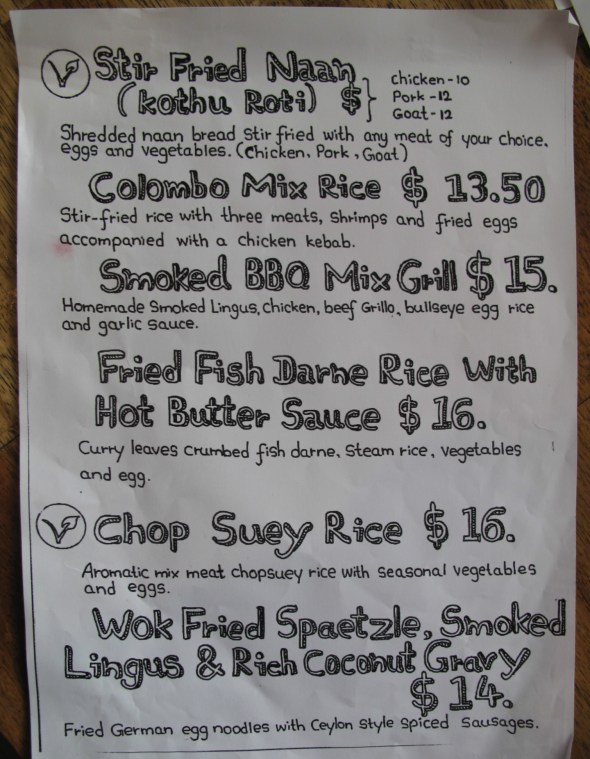 Stir Fried Naan
(kothu Roti) $
chicken-10
Pork -12
Goat-12
Shredded naan bread Stir fried with any meat of your choice,
eggs and vegetables. (Chicken, Pork, Goat)
Colombo Mix Rice $ 13.50
Stir-fried rice with three meats, Shrimps and fried eggs
accompanied with a chicken kebab.
Smoked BBQ Mix Grill $ 15.
Homemade Smoked Lingus, chicken, beef Grillo, bullseye egg rice
and garlic sauce.
Fried Fish Darne Rice With
Hot Butter Sauce $ 16.
Curry leaves crumbed fish darne, Steam rice, vegetables
and egg.
Chop Suey Rice $ 16.
Aromatic mix meat chopsuey rice with seasonal vegetables
and eggs.
Wok Fried Spaetzle, Smoked
Lingus & Rich Coconut Gravy
$ 14.
Fried German egg noodles with Ceylon Style Spiced Sausages.